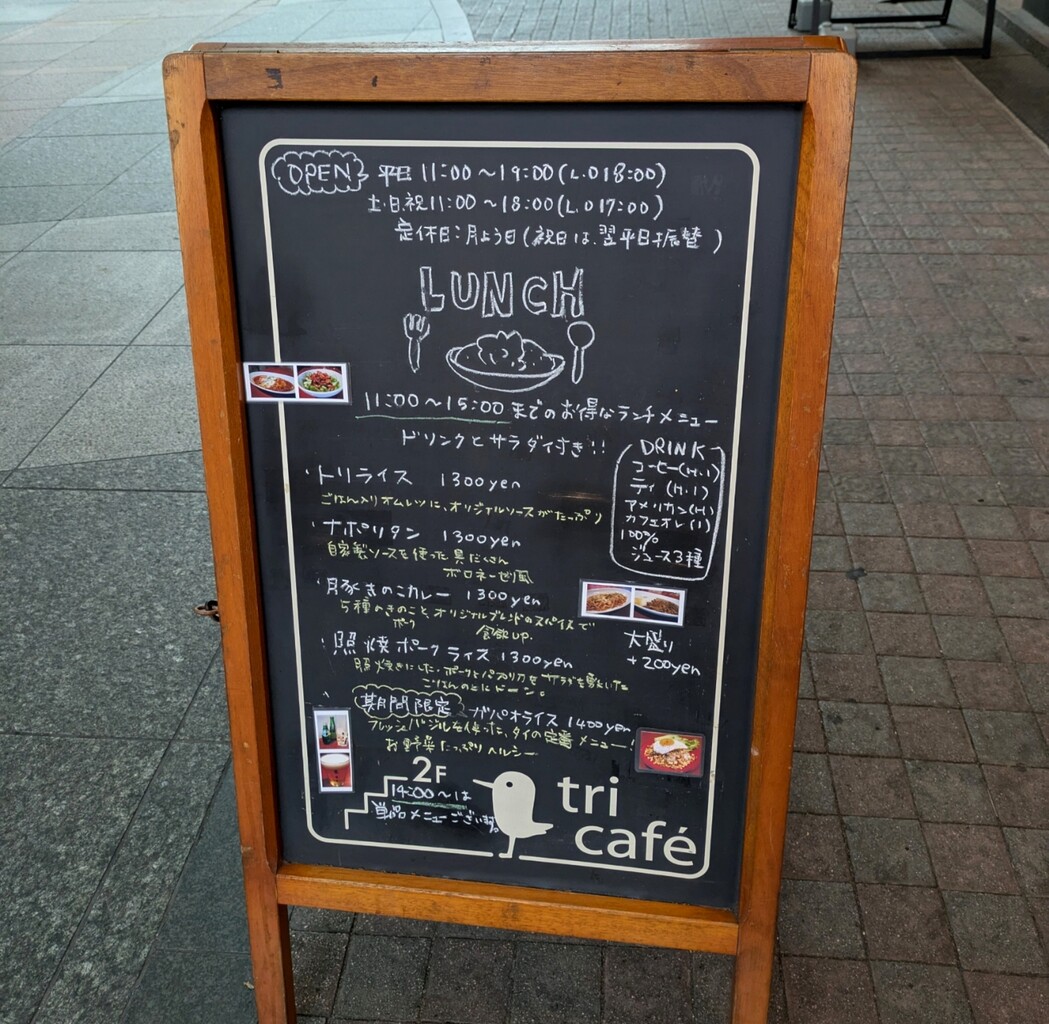 OPEN 平日 11:00～19:00(L.O18:00)
土・日・祝11:00～18:00(L.O17:00)
定休日:月よう日(祝日は、翌平日振替)
LUNCH
11:00～15:00までのお得なランチメニュー
ドリンクとサラダ付き!!
DRINK
コーヒー(H.I)
ティ(H.I)
アメリカン(H)
カフェオレ(I)
100%
ジュース3種
・トリライス 1300yen
ごはん入りオムレツに、オリジナルソースがたっぷり
・ナポリタン 1300yen
自家製ソースを使った具だくさん
ボロネーゼ風
・豚きのこカレー 1300yen
5種のきのこと、オリジナルブレンドのスパイスで
食欲UP.
・照焼ポークライス 1300yen
ポーク
照焼きにした、ポークとパプリカをサラダを敷いた
ごはんの上にドーン。
大盛り
+200yen
期間限定 ガパオライス 1400yen
フレッシュバジルを使った、タイの定番メニュー!
お野菜たっぷりヘルシー
2F
14:00～は
単品メニューございます。
tri
café